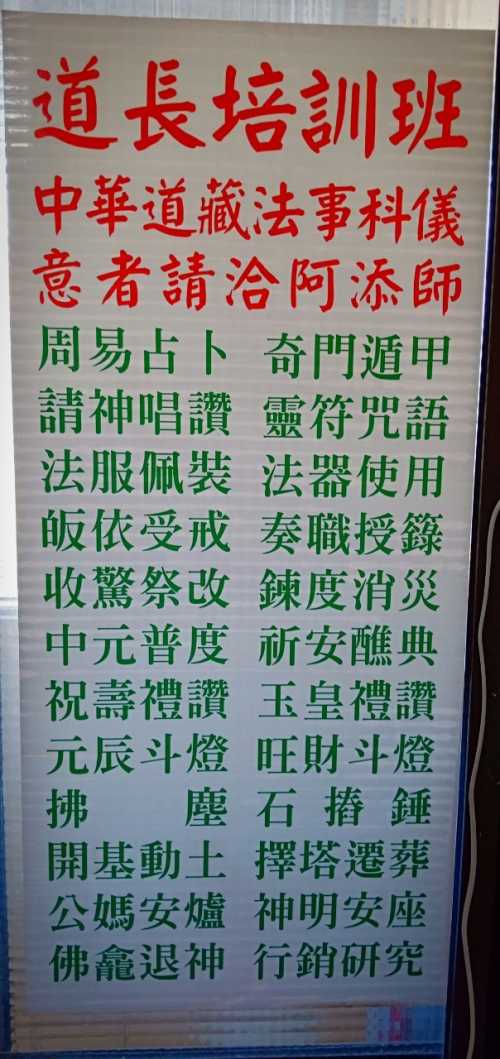 道長培訓班
中華道藏法事科儀
意者請洽阿添師
周易占卜 奇門遁甲
請神唱讚 靈符咒語
法服佩裝 法器使用
皈依受戒 奏職授籙
收驚祭改 鍊度消災
中元普度 祈安醮典
祝壽禮讚 玉皇禮讚
元辰斗燈 旺財斗燈
拂塵 石摏錘
開基動土 擇塔遷葬
公媽安爐 神明安座
佛龕退神 行銷研究